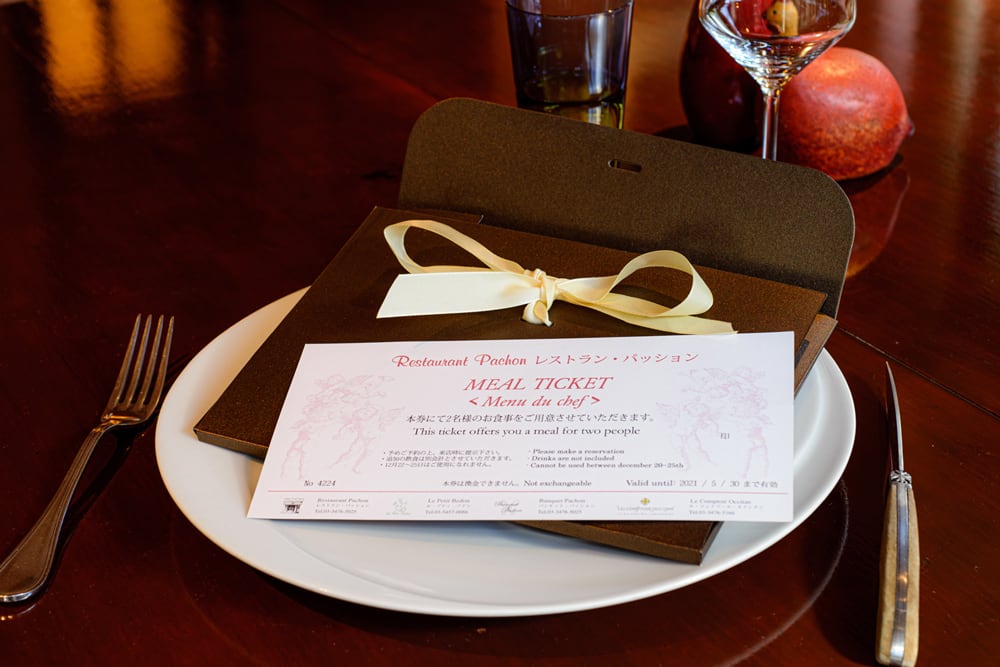 Restaurant Pachon レストラン・パッション
MEAL TICKET
< Menu du chef >
本券にて2名様のお食事をご用意させていただきます。
This ticket offers you a meal for two people
・予めご予約の上、来店時に提示下さい。
・追加の飲食は別会計とさせていただきます。
・12月22〜25日はご使用になれません。
・Please make a reservation
・Drinks are not included
・Cannot be used between december 20-25th
印
No 4224
本券は換金できません。Not exchangeable
Valid until: 2021 / 5 / 30 まで有効
Restaurant Pachon
レストラン・パッション
Tel.03-3476-5025
Le Petit Bedon
ル・プティ・ブドン
Tel.03-5457-0086
Banquet Pachon
バンケット・パッション
Tel.03-3476-5025
Le Comptoir Occitan
ル・コントワール・オクシタン